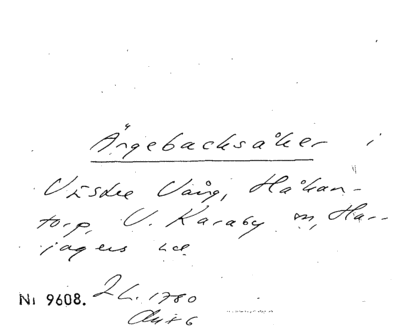 Ängebacksåker i
Västra Vång, Håkan-
torp, V. Karaby sn, Har-
jagers hd
Nr 9608. 2 L. 1780